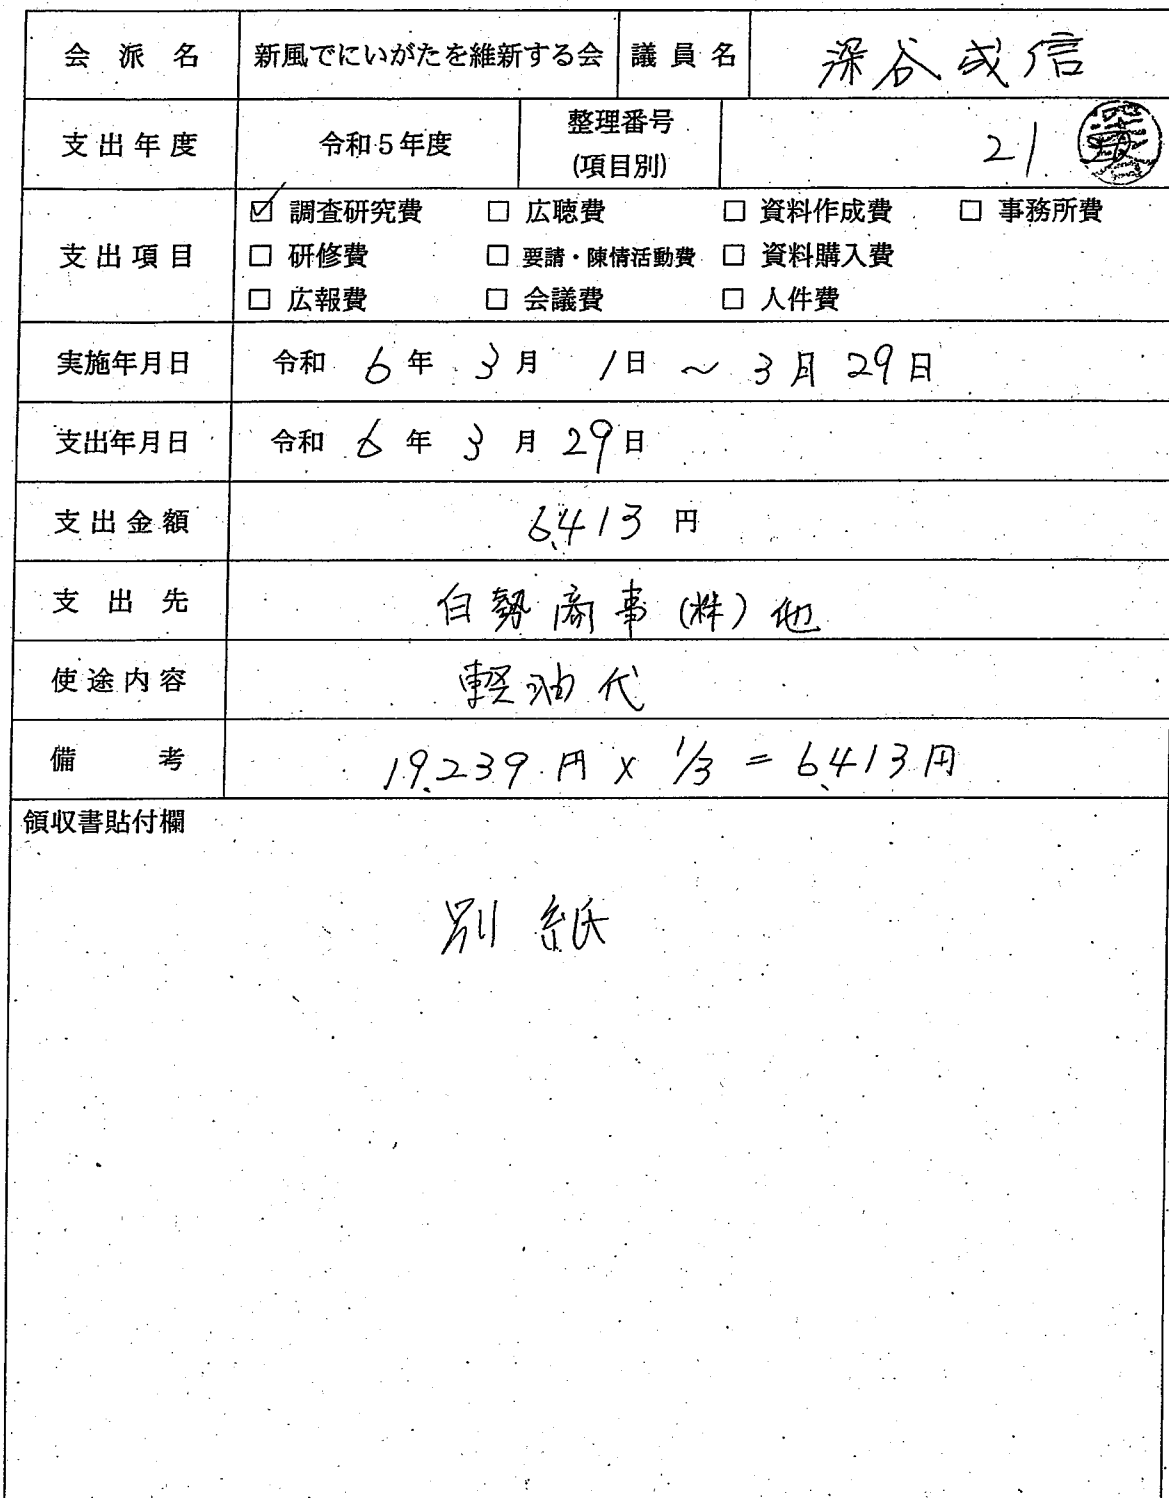 会派名 新風でにいがたを維新する会 議員名 深谷成信
支出年度 令和5年度 整理番号(項目別) 21
支出項目
☑ 調査研究費 □ 広聴費 □ 資料作成費 □ 事務所費
□ 研修費 □ 要請・陳情活動費 □ 資料購入費
□ 広報費 □ 会議費 □ 人件費
実施年月日 令和 6年 3月 1日 ~ 3月 29日
支出年月日 令和 6年 3月 29日
支出金額 6,413 円
支出先 白勢商事(株)他
使途内容 軽油代
備考 19,239円 × 1/3 = 6,413円
領収書貼付欄
別紙